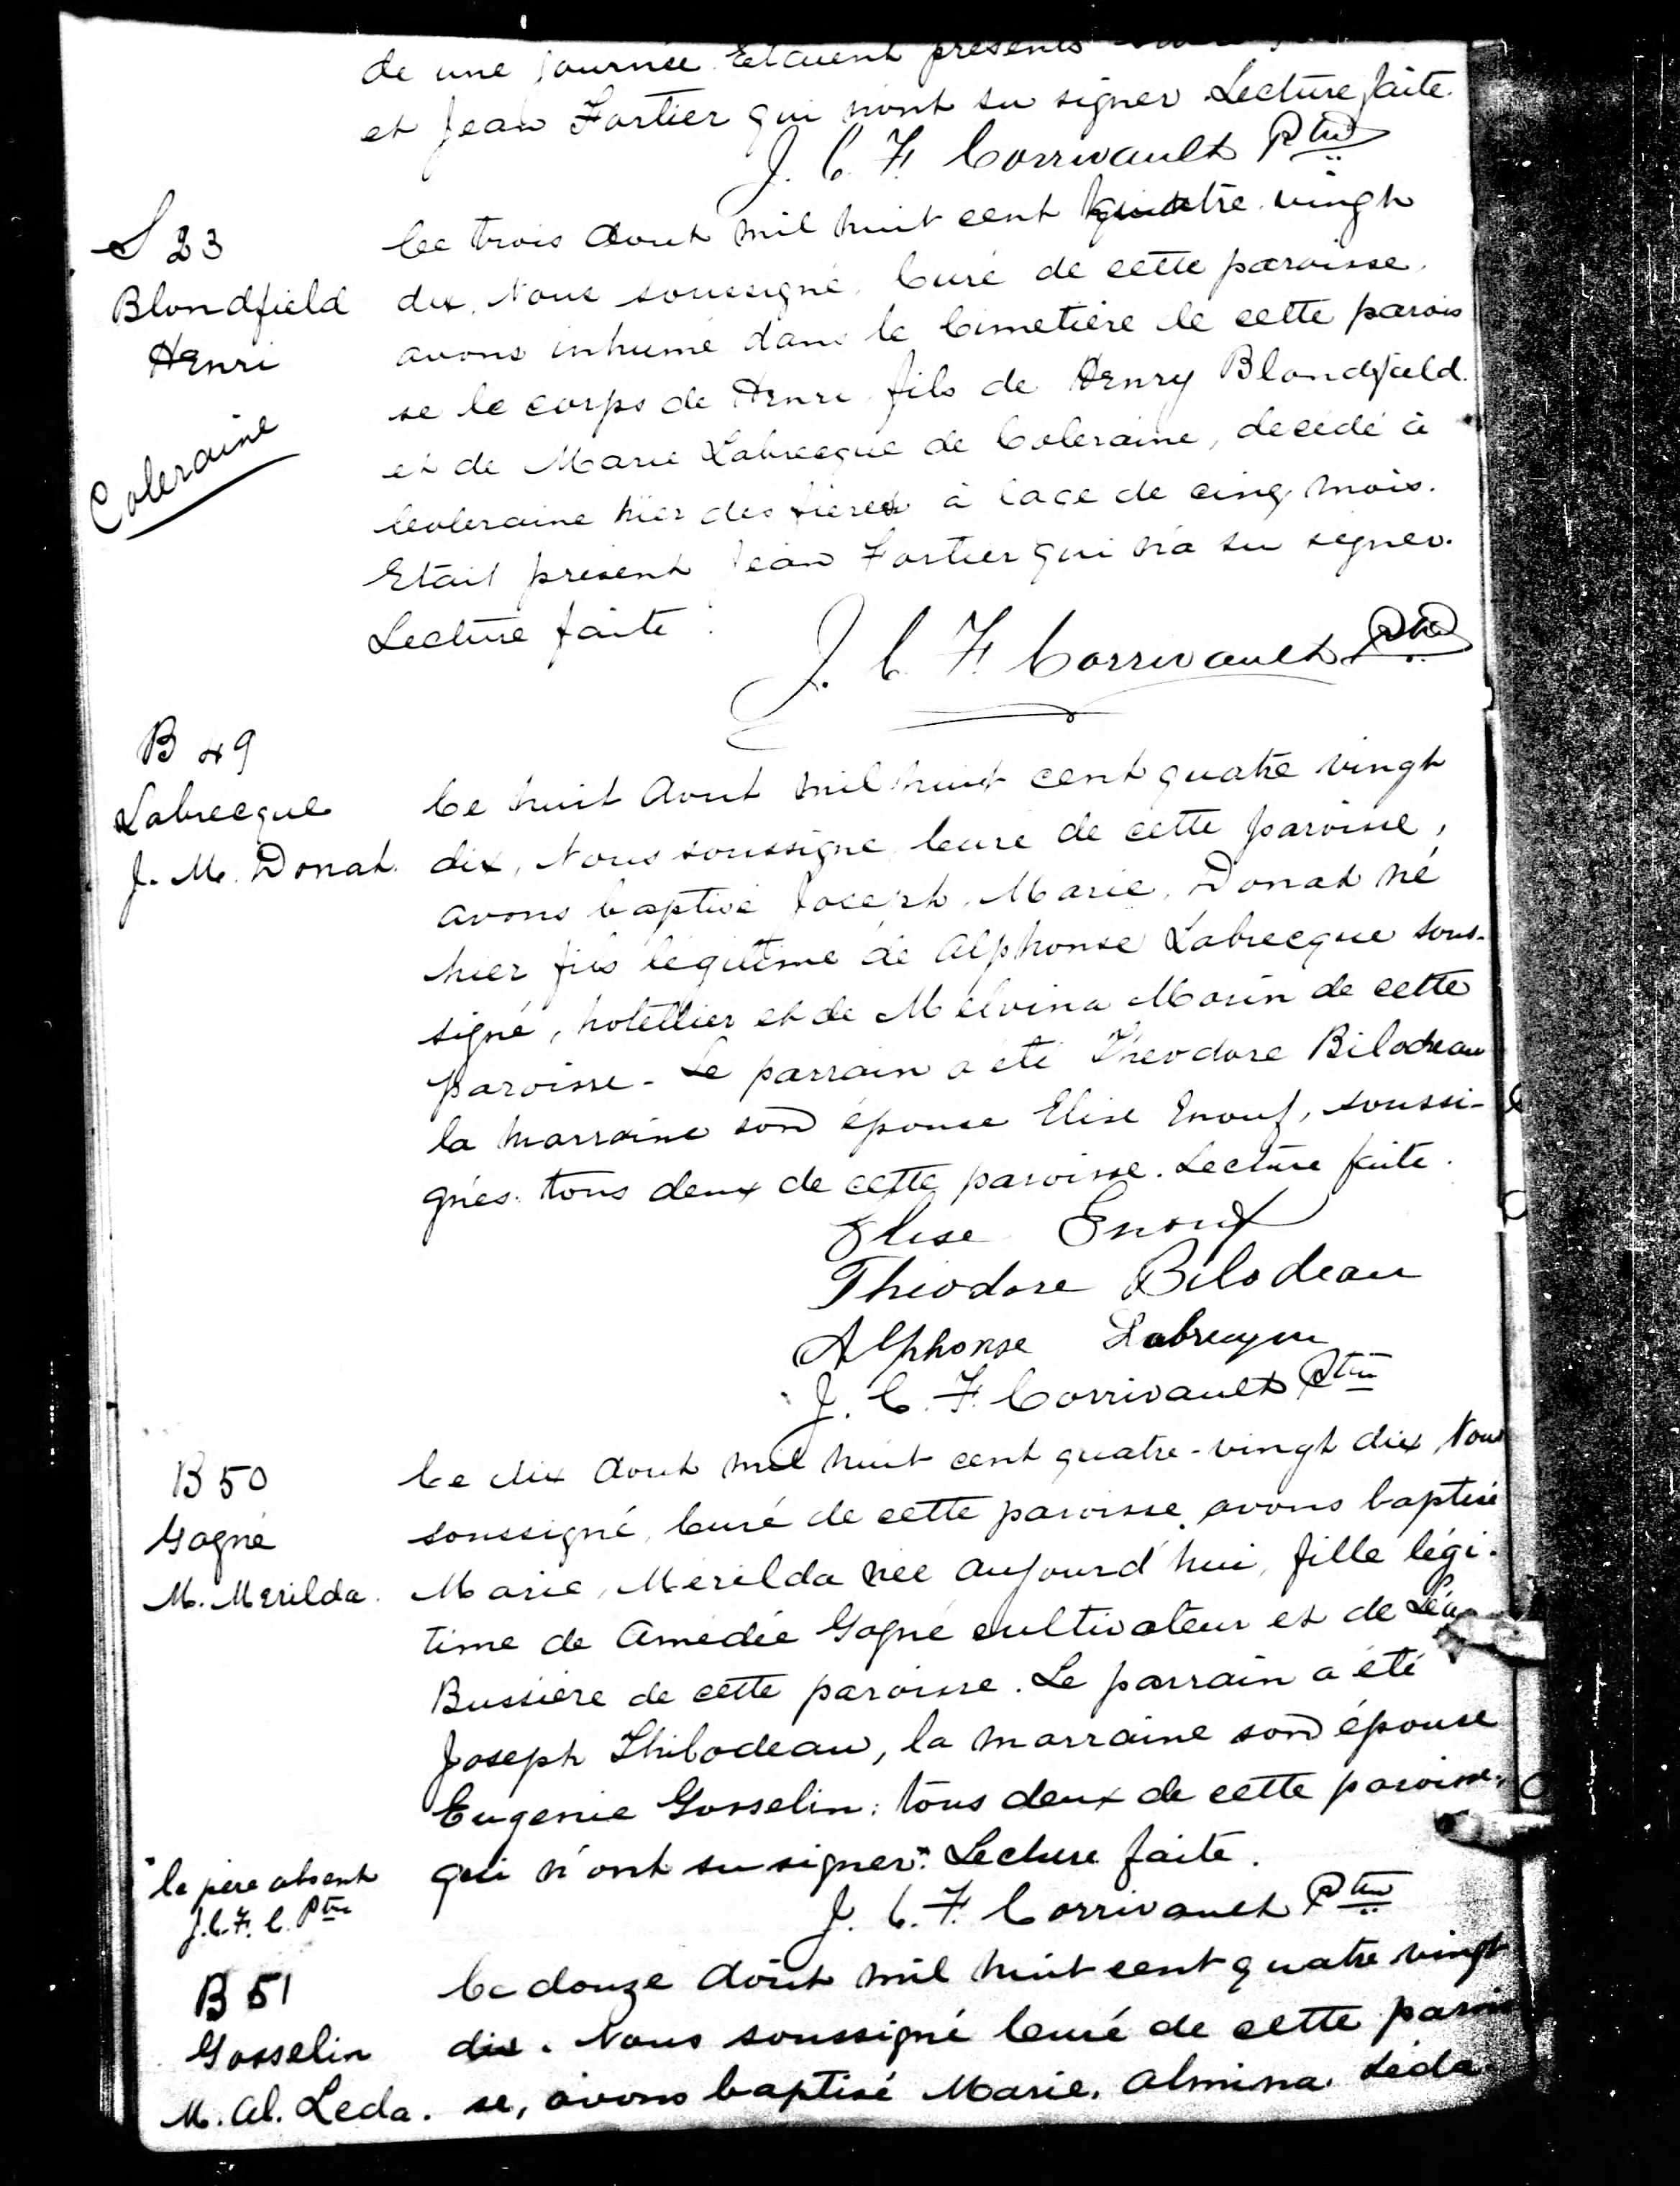 de une journée. Etaient présents
et Jean Fortier qui n'ont su signer. Lecture faite.
J. C. F. Corrivault Ptre
S 23
Blondfield
Henri
Coleraine
Ce trois Aout mil huit cent quatre vingt
dix, Nous soussigné, Curé de cette paroisse,
avons inhumé dans le Cimetière de cette parois
se le corps de Henri fils de Henry Blondfield
et de Marie Labrecque de Coleraine, décédé à
Coleraine hier des fièvres à l'age de cinq mois.
Etait présent Jean Fortier qui n'a su signer.
Lecture faite.
J. C. F. Corrivault Ptre
B 49
Labrecque
J. M. Donat.
Ce huit Aout mil huit cent quatre vingt
dix, Nous soussigné Curé de cette paroisse,
avons baptisé Joseph, Marie, Donat né
hier fils légitime de Alphonse Labrecque sous-
signé, hotellier et de Melvina Morin de cette
paroisse - Le parrain a été Théodore Bilodeau
la marraine son épouse Elise Enouf, soussi-
gnés tous deux de cette paroisse. Lecture faite.
Elise Enouf
Théodore Bilodeau
Alphonse Labrecque
J. C. F. Corrivault Ptre
B 50
Gagné
M. Merilda.
Ce dix Aout mil huit cent quatre-vingt dix, Nous
soussigné, Curé de cette paroisse, avons baptisé
Marie, Merilda née aujourd'hui, fille légi-
time de Amédée Gagné cultivateur et de Léa
Bussière de cette paroisse. Le parrain a été
Joseph Thibodeau, la marraine son épouse
Eugenie Gosselin: tous deux de cette paroisse,
qui n'ont su signer". Lecture faite.
" le père absent
J. C. F. C. Ptre
J. C. F. Corrivault Ptre
B 51
Gosselin
M. Al. Leda.
Ce douze Aout mil huit cent quatre vingt
dix. Nous soussigné Curé de cette parois
se, avons baptisé Marie, Almina, Léda